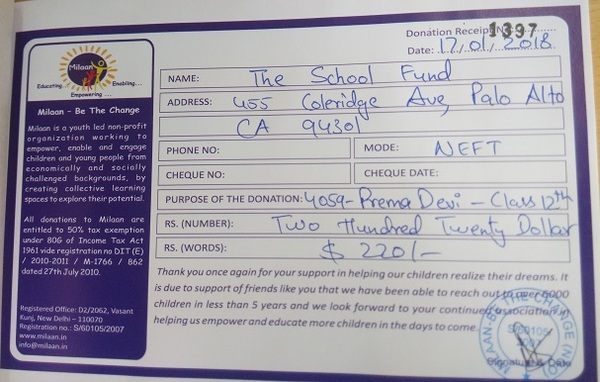 Milaan
Educating...
Enabling...
Empowering ...
Milaan - Be The Change
Milaan is a youth led non-profit
organization working to
empower, enable and engage
children and young people from
economically and socially
challenged backgrounds, by
creating collective learning
spaces to explore their potential.
All donations to Milaan are
entitled to 50% tax exemption
under 80G of Income Tax Act
1961 vide registration no DIT (E)
/ 2010-2011 / M-1766 / 862
dated 27th July 2010.
Registered Office: D2/2062, Vasant
Kunj, New Delhi – 110070
Registration no.: S/60105/2007
www.milaan.in
info@milaan.in
Donation Receipt No. 1397
Date: 17/01/2018
NAME: The School Fund
ADDRESS: 455 Coleridge Ave, Palo Alto
CA 94301
PHONE NO: MODE: NEFT
CHEQUE NO: CHEQUE DATE:
PURPOSE OF THE DONATION: 4059-Prema Devi - Class 12th
RS. (NUMBER): Two Hundred Twenty Dollar
RS. (WORDS): $ 220/-
Thank you once again for your support in helping our children realize their dreams. It
is due to support of friends like you that we have been able to reach out to over 6000
children in less than 5 years and we look forward to your continued association in
helping us empower and educate more children in the days to come.
S/60105
2007
Signature &